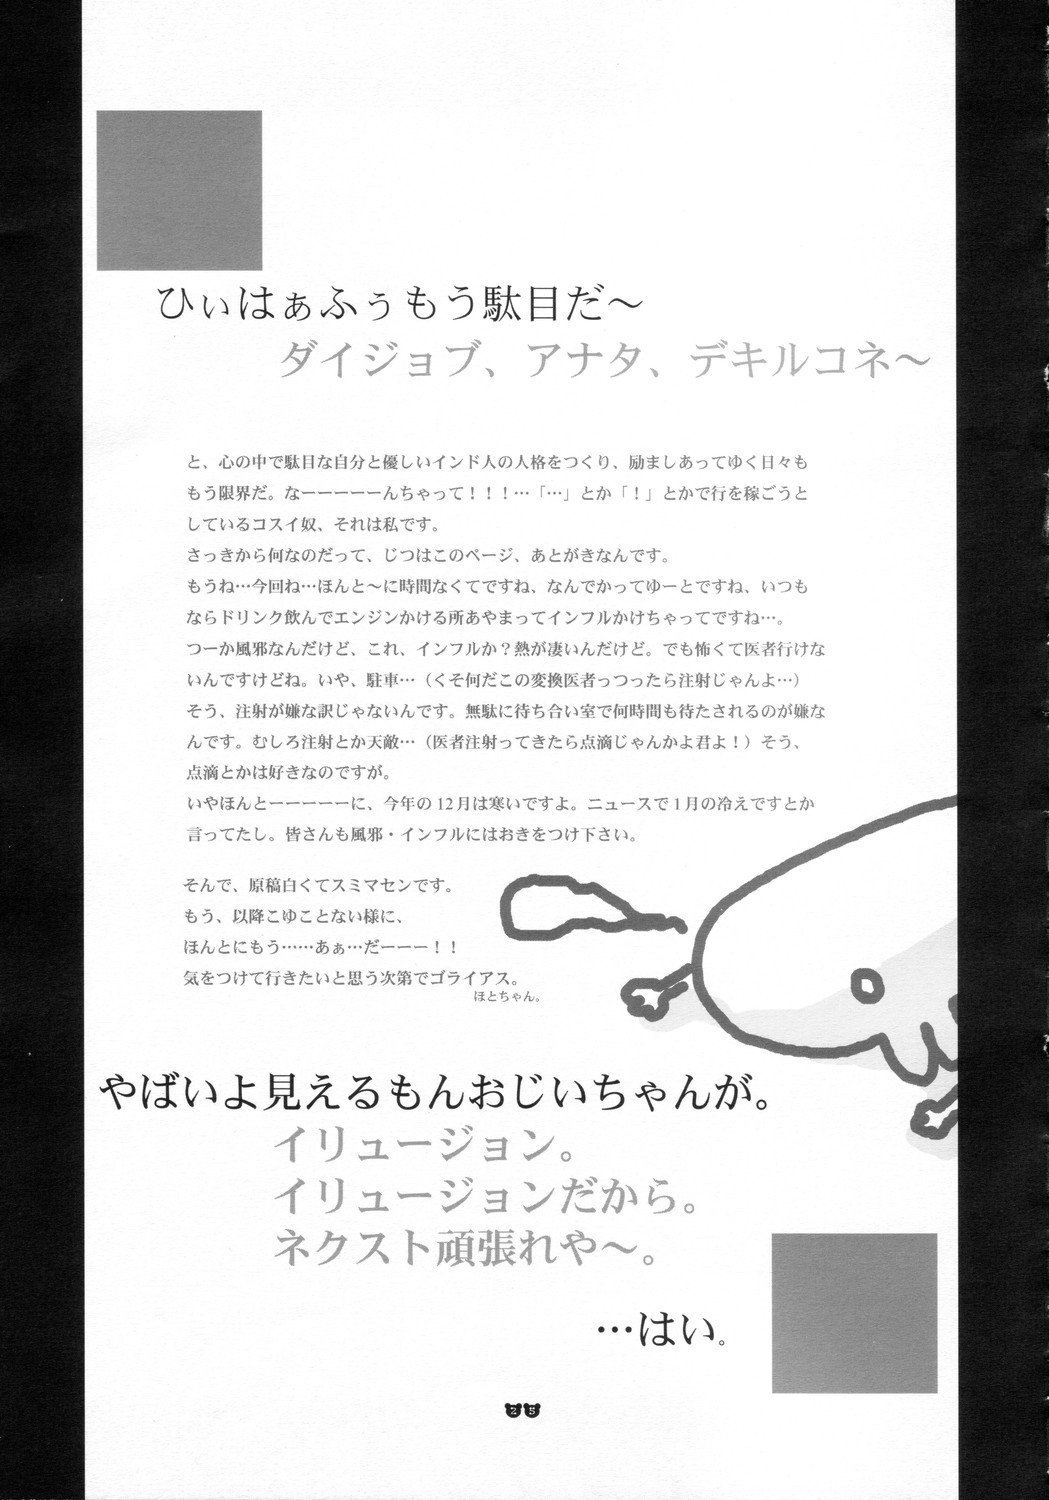 ひぃはぁふぅもう駄目だ～
ダイジョブ、アナタ、デキルコネ～
と、心の中で駄目な自分と優しいインド人の人格をつくり、励ましあってゆく日々も
もう限界だ。なーーーーーんちゃって！！！…「…」とか「！」とかで行を稼ごうと
しているコスイ奴、それは私です。
さっきから何なのだって、じつはこのページ、あとがきなんです。
もうね…今回ね…ほんと～に時間なくてですね、なんでかってゆーとですね、いつも
ならドリンク飲んでエンジンかける所あやまってインフルかけちゃってですね…。
つーか風邪なんだけど、これ、インフルか？熱が凄いんだけど。でも怖くて医者行けな
いんですけどね。いや、駐車…（くそ何だこの変換医者っつったら注射じゃんよ…）
そう、注射が嫌な訳じゃないんです。無駄に待ち合い室で何時間も待たされるのが嫌な
んです。むしろ注射とか天敵…（医者注射ってきたら点滴じゃんかよ君よ！）そう、
点滴とかは好きなのですが。
いやほんとーーーーーに、今年の12月は寒いですよ。ニュースで1月の冷えですとか
言ってたし。皆さんも風邪・インフルにはおきをつけ下さい。
そんで、原稿白くてスミマセンです。
もう、以降こゆことない様に、
ほんとにもう……あぁ…だーーー！！
気をつけて行きたいと思う次第でゴライアス。
ほとちゃん。
やばいよ見えるもんおじいちゃんが。
イリュージョン。
イリュージョンだから。
ネクスト頑張れや～。
…はい。
25